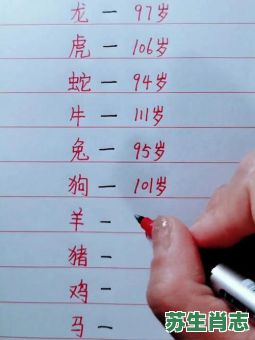 龙 — 97岁
虎 — 106岁
蛇 — 94岁
牛 — 111岁
兔 — 95岁
狗 — 101岁
羊 —
猪 —
鸡 —
马 —
苏生肖志